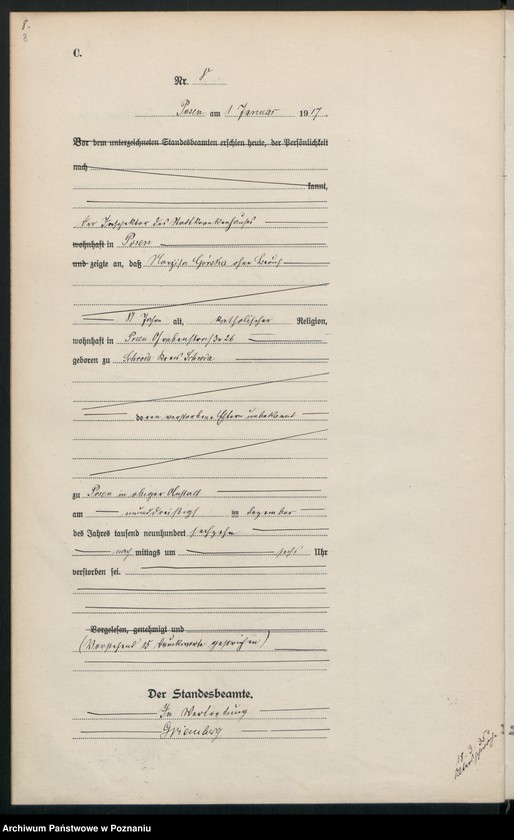 8.
8
C.
Nr. 8
Posen am 1 Januar 1917.
Vor dem unterzeichneten Standesbeamten erschien heute, der Persönlichkeit
nach
kannt,
Der Inspektor des Stadtkrankenhauses
wohnhaft in Posen
und zeigte an, daß Górska ohne Beruf
Jahre alt, katholischer Religion,
wohnhaft in Posen Grabenstraße 26
geboren zu Schroda Kreis Schroda
deren verstorbene Eltern unbekannt
zu Posen in obiger Anstalt
am im Dezember
des Jahres tausend neunhundert sechzehn
nach mittags um sechs Uhr
verstorben sei.
Vorgelesen, genehmigt und
(Vorstehend 15 Druckworte gestrichen)
Der Standesbeamte.
In Vertretung
Archiwum Państwowe w Poznaniu